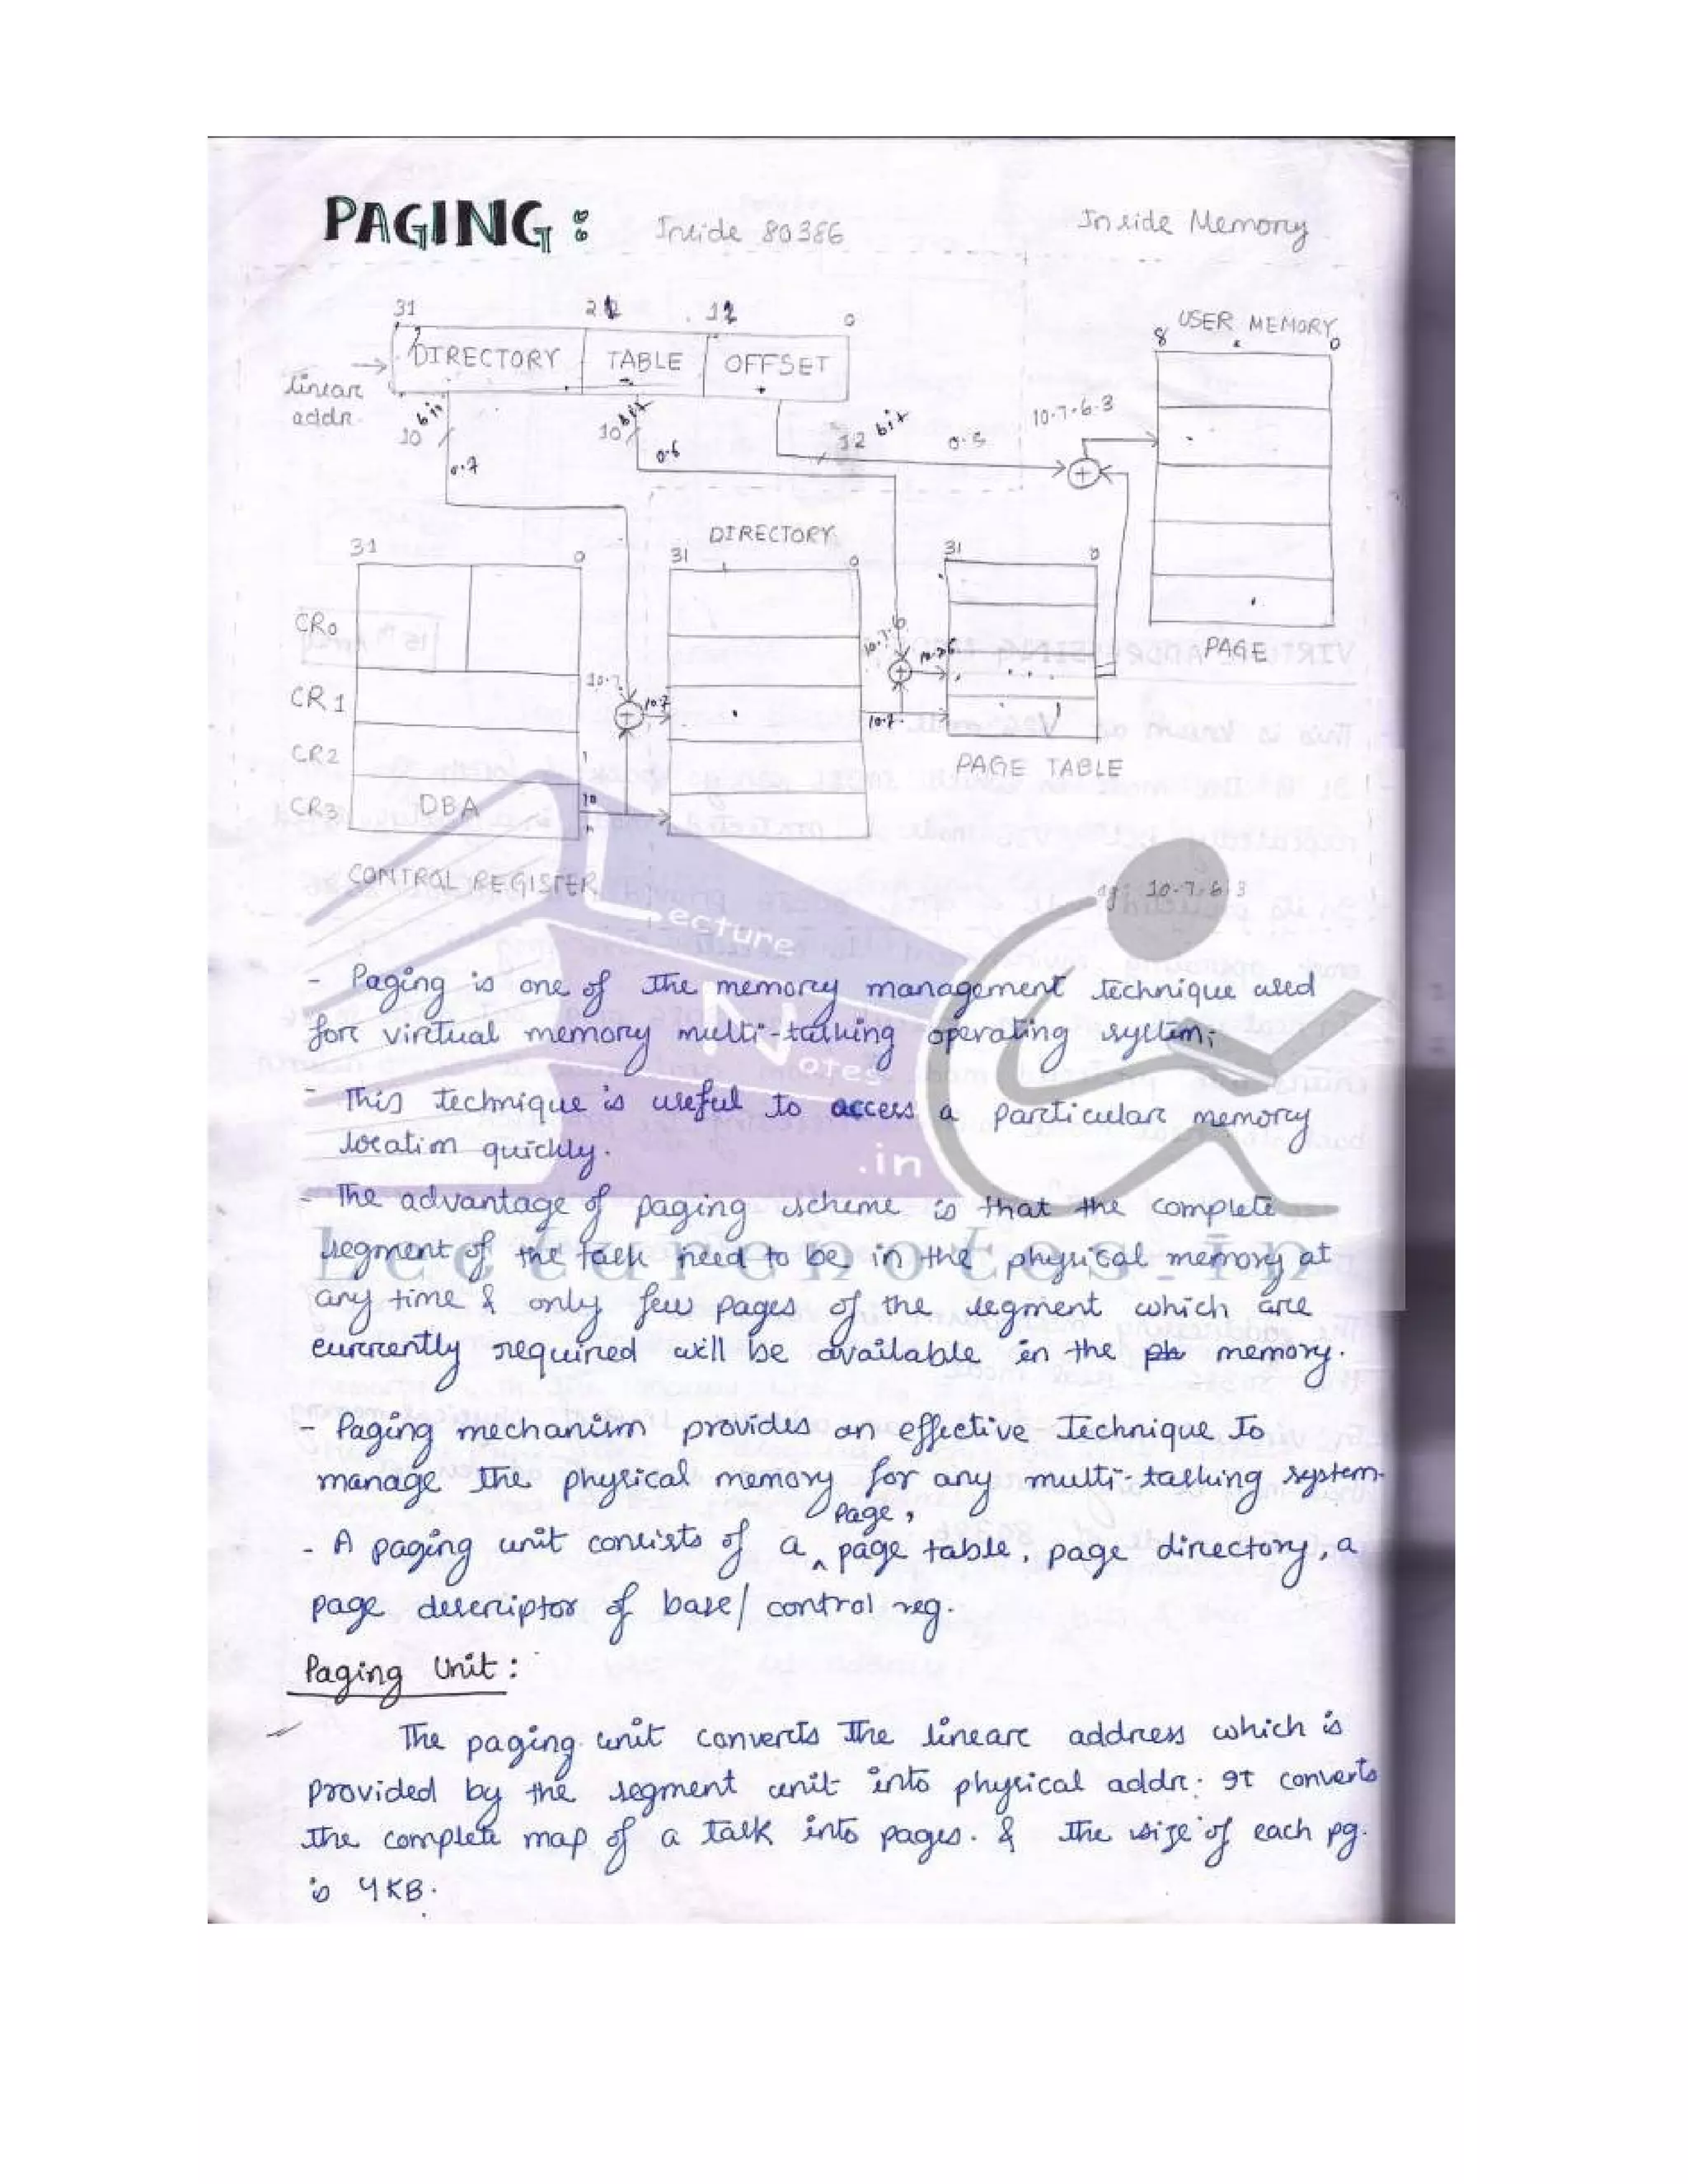 PAGING :
Inside 80386
Inside Memory
31
0
DIRECTORY
TABLE
OFFSET
linear
addr.
10 bit
10 bit
12 bit
0.7
0.6
0.5
10.7.6.3
USER MEMORY
8
0
PAGE
31
0
CR0
CR1
CR2
CR3
DBA
10
CONTROL REGISTER
10.7
10.7
DIRECTORY
31
0
10.7.6
10.7.
31
0
PAGE TABLE
10.7.6.3
- Paging is one of the memory management technique used
for virtual memory multi-tasking operating system;
- This technique is useful to access a particular memory
location quickly.
- The advantage of paging scheme is that the complete
segment of the task need to be in the physical memory at
any time & only few pages of the segment which are
currently required will be available in the ph memory.
- Paging mechanism provides an effective Technique to
manage the physical memory for any multi-tasking system.
- A paging unit consists of a page, page table, page directory, a
page descriptor of base/ control reg.
Paging Unit :
The paging unit converts the linear address which is
provided by the segment unit into physical addr. It converts
the complete map of a task into pages. & the size of each pg.
is 4KB.
Lecture
Notes
.in
Lecturenotes.in